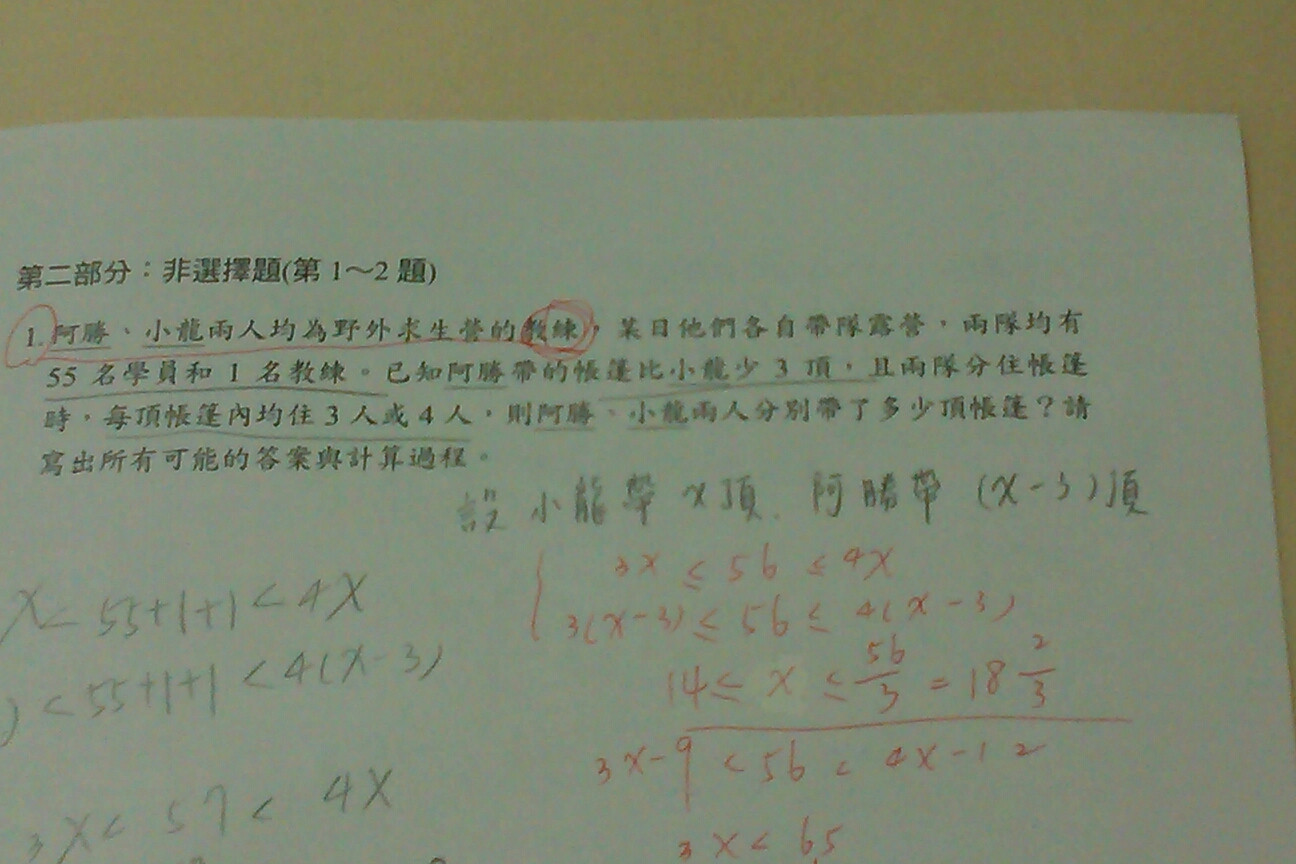 第二部分：非選擇題(第1～2題)
1. 阿勝、小龍兩人均為野外求生營的教練，某日他們各自帶隊露營，兩隊均有
55 名學員和 1 名教練。已知阿勝帶的帳篷比小龍少 3 頂，且兩隊分住帳篷
時，每頂帳篷內均住 3 人或 4 人，則阿勝、小龍兩人分別帶了多少頂帳篷？請
寫出所有可能的答案與計算過程。
設小龍帶 x頂. 阿勝帶 (x-3)頂
3x ≤ 56 ≤ 4x
3(x-3) ≤ 56 ≤ 4(x-3)
14 ≤ x ≤ 56/3 = 18 2/3
3x-9 < 56 < 4x-12
3x < 65
x < 55+1+1 < 4x
) < 55+1+1 < 4(x-3)
3x < 57 < 4x